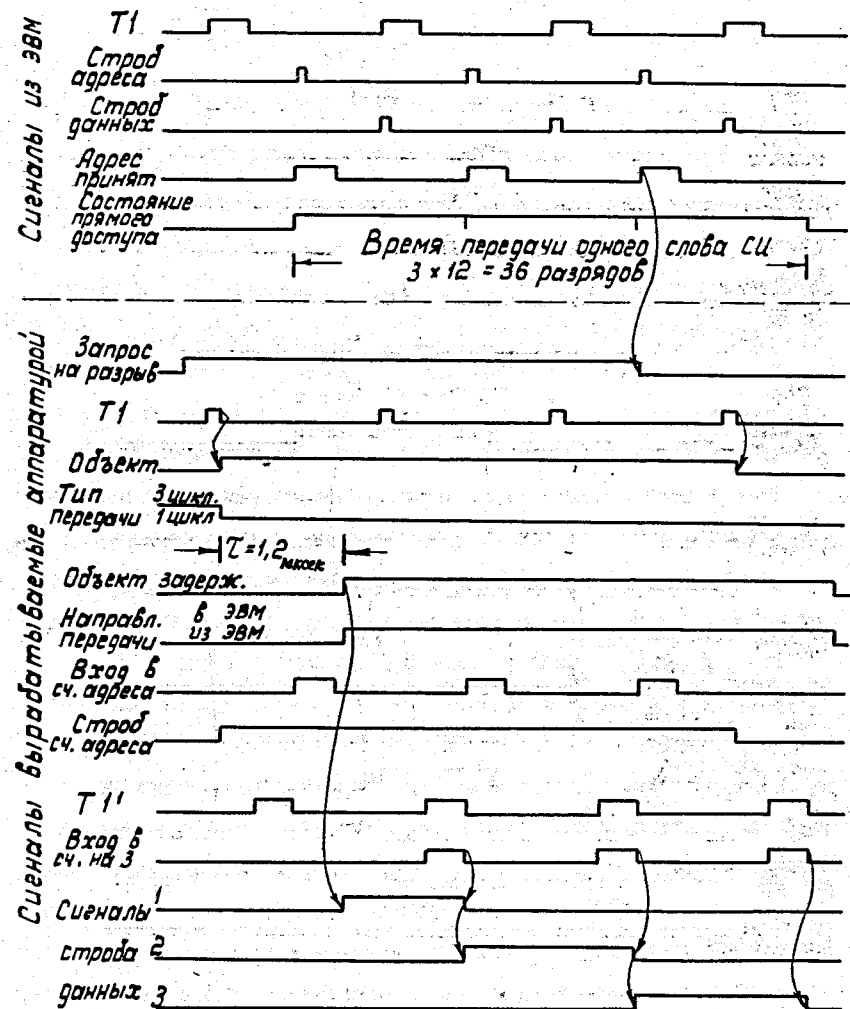 Сигналы из ЭВМ
T1
Строб
адреса
Строб
данных
Адрес
принят
Состояние
прямого
доступа
Время передачи одного слова СИ
3 x 12 = 36 разрядов
Сигналы вырабатываемые аппаратурой
Запрос
на разрыв
T1
Объект
Тип 3 цикл.
передачи 1 цикл
τ=1,2 мксек
Объект задерж.
Направл. в ЭВМ
передачи из ЭВМ
Вход в
сч. адреса
Строб
сч. адреса
T1'
Вход в
сч. на 3
Сигналы 1
строба 2
данных 3